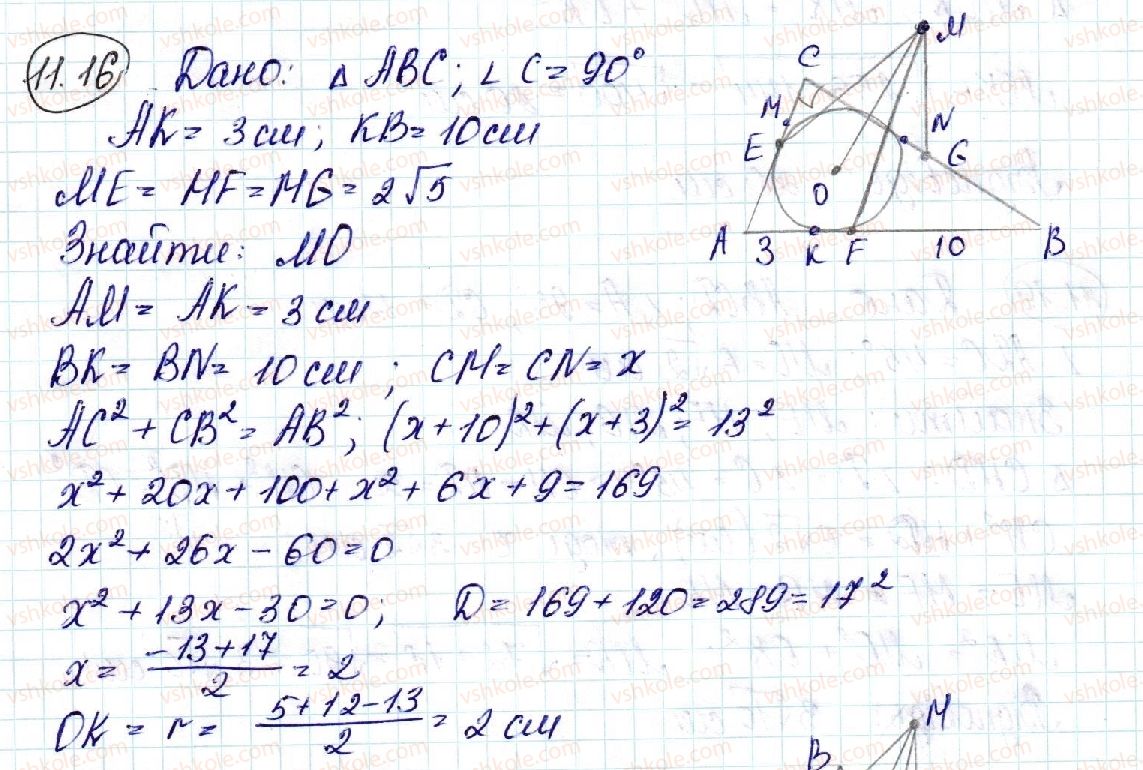 11.16 Дано: △ ABC; ∠ C = 90°
AK = 3 см; KB = 10 см
ME = MF = MG = 2√5
Знайти: MO
AM = AK = 3 см
BK = BN = 10 см; CM = CN = x
AC² + CB² = AB²; (x + 10)² + (x + 3)² = 13²
x² + 20x + 100 + x² + 6x + 9 = 169
2x² + 26x − 60 = 0
x² + 13x − 30 = 0; D = 169 + 120 = 289 = 17²
x = (−13 + 17)/2 = 2
OK = r = (5 + 12 − 13)/2 = 2 см
M
C
M
N
E
G
O
A 3 K F 10 B
M
B
vshkole.com